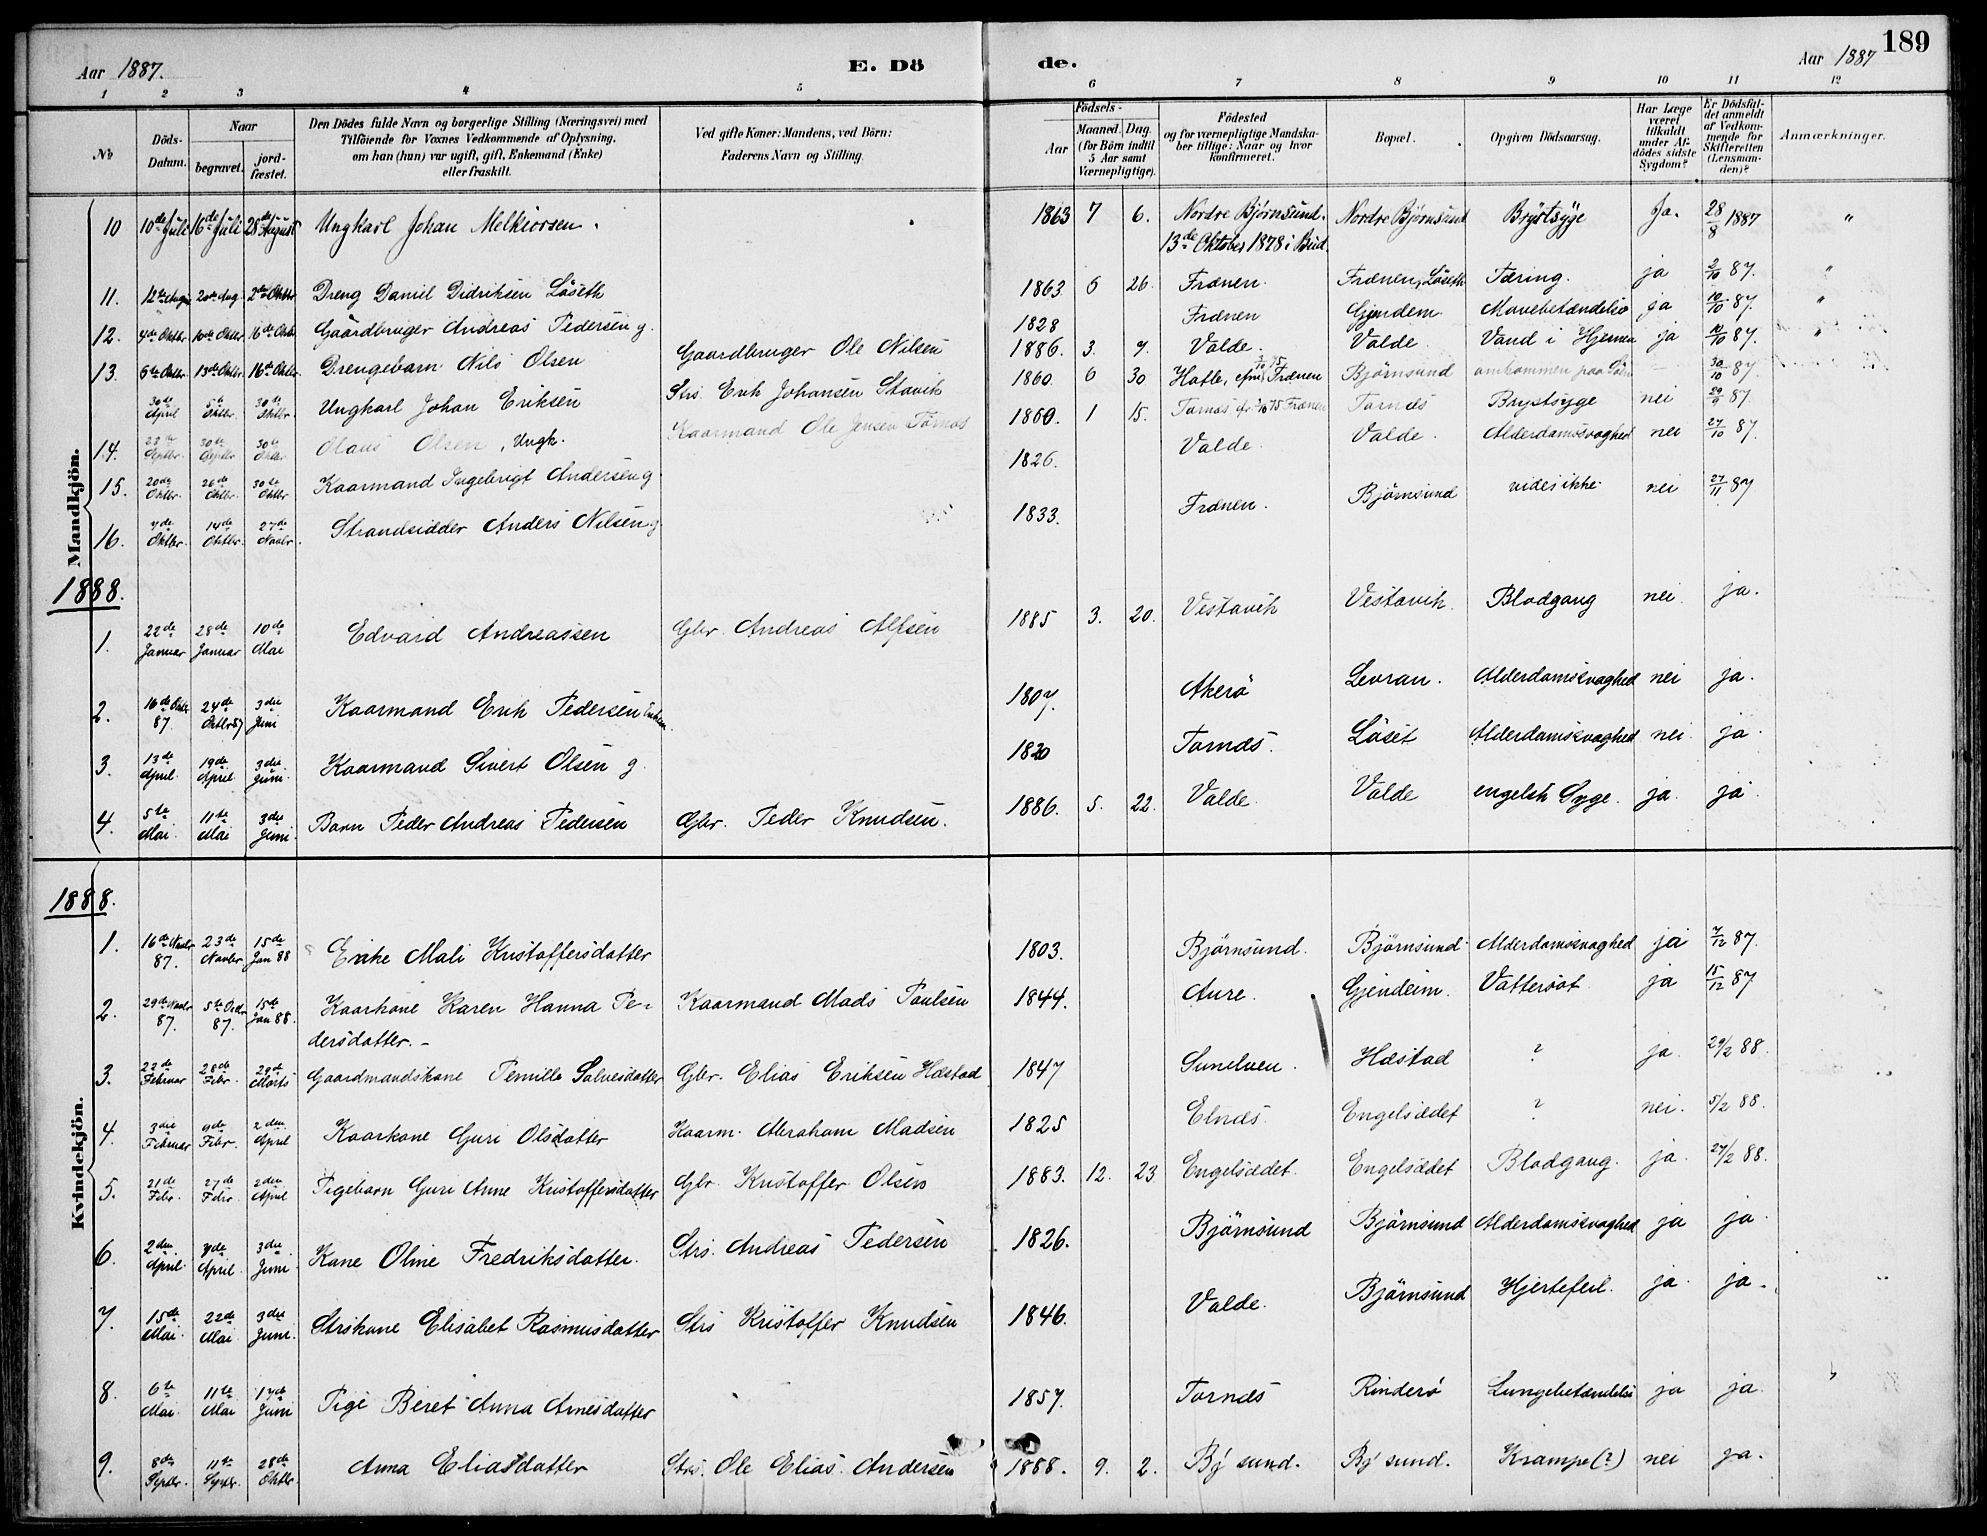 189
Aar 1887. E. Dö de. Aar 1887
1 2 3 4 5 6 7 8 9 10 11 12
No Döds-Datum. Naar begravet. jordfæstet. Den Dödes fulde Navn og borgerlige Stilling (Næringsvei) med Tilföiende for Voxnes Vedkommende af Oplysning, om han (hun) var ugift, gift, Enkemand (Enke) eller fraskilt. Ved gifte Koner: Mandens, ved Börn: Faderens Navn og Stilling. Födsels- Aar Maaned. Dag. (for Börn indtil 5 Aar samt Værnepligtige). Födested og for værnepligtige Mandskaber tillige: Naar og hvor konfirmeret. Bopæl. Opgiven Dödsaarsag. Har Læge været tilkaldt under Afdödes sidste Sygdom? Er Dödsfaldet anmeldt af Vedkommende for Skifteretten (Lensmanden)? Anmærkninger.
Mandkjön.
10 10de Juli 16de Juli 28de August Ungkarl Johan Melkiorsen. 1863 7 6. Nordre Björnsund. 13de Oktober 1878 i Bud. Nordre Björnsund Brystsyge Ja. 28/8 1887 "
11. 12te Aug. 20de Aug. 2den Oktbr. Dreng Daniel Didriksen Löseth 1863 6 26. Frænen. Frænen, Löseth Tæring. ja 2/10 87. "
12. 4de Oktbr. 10de Oktbr. 16de Oktbr. Gaardbruger Andreas Pedersen g. 1828 Frænen Gjendem Mavebetændelse ja 10/10 87. "
13. 6te Oktbr. 13de Oktbr. 16de Oktbr. Drengebarn Nils Olsen Gaardbruger Ole Nilsen 1886. 3. 7. Valde. Valde Vand i Hjernen ja 10/10 87. "
30de April 5te Oktbr. 30de Oktbr. Ungkarl Johan Eriksen Strs. Erik Johansen Stavik 1860. 6 30 Frænen Björnsund omkommen paa 30/10 87.
14. 23de Septbr. 30te Septbr. 30te Oktbr. Olaus Olsen, Ungk. Kaarmand Ole Jensen Tornæs 1860. 1 15. Tornæs Frænen Tornæs Brystsyge nei 29/9 87.
15. 20de Oktbr. 26de Oktbr. 30te Oktbr. Kaarmand Ingebrigt Andersen g 1826. Valde. Valde. Alderdomssvaghed nei 27/10 87.
16. 7de Oktbr. 14de Oktbr. 27de Novbr. Strandsidder Anders Nilsen g 1833. Frænen. Björnsund vides ikke nei 27/11 87
1888.
1. 22de Januar 28de Januar 10de Mai Edvard Andreassen Gbr. Andreas Alfsen 1885 3. 20. Vestavik Vestavik. Blodgang nei. ja.
2. 16de Oktbr 87. 24de Oktbr 87 3die Juni Kaarmand Erik Pedersen Enkem. 1807. Akerö Levran. Alderdomssvaghed nei ja.
3. 13de April 19de April 3die Juni. Kaarmand Sivert Olsen g. 1820 Tornæs. Löset Alderdomssvaghed nei. ja.
4. 5te Mai. 11te Mai 3die Juni. Barn Peder Andreas Pedersen Gbr. Peder Knudsen. 1886. 5. 22. Valde. Valde engelsk Syge. ja. ja.
1888.
Kvindekjön.
1. 16de Novbr 87. 23de Novbr 15de Jan 88 Enke Mali Kristoffersdatter 1803. Björnsund. Björnsund Alderdomssvaghed ja 7/12 87.
2. 29de Novbr 87. 5te Decbr 87. 15de Jan 88. Kaarkone Karen Hanna Pe-
dersdatter. Kaarmand Mads Paulsen 1844. Aure. Gjendeim. Vattersot ja 15/12 87
3. 22de Februar 28de Febr. 29de Marts Gaardmandskone Pernille Salvesdatter Gbr. Elias Eriksen Hæstad 1847 Sunelven. Hæstad ? ja. 29/2 88.
4. 3die Februar 9de Febr. 2den April Kaarkone Guri Olsdatter Kaarm. Abraham Madsen 1825 Elnæs. Engelsædet ? nei. 5/2 88.
5. 21de Febr. 27de Febr. 2den April Pigebarn Guri Anne Kristoffersdatter Gbr. Kristoffer Olsen 1883. 12. 23 Engelsædet. Engelsædet Blodgang. ja. 27/2 88.
6. 2den April. 7de April. 3die Juni. Kone Oline Fredriksdatter. Strs. Andreas Pedersen 1826. Björnsund Björnsund Alderdomssvaghed ja ja.
7. 15de Mai. 22de Mai 3die Juni. Strskone Elisabet Rasmusdatter Strs Kristoffer Knudsen 1846. Valde. Björnsund Hjertefeil. ja. ja.
8. 6te Mai. 11te Mai 17de Juni Pige Beret Anna Arnesdatter 1857. Tornæs Rinderö Lungebetændelse ja ja.
9. 8de Septbr. 11te Septbr. 28de Oktbr. Anna Eliasdatter Strs. Ole Elias Andersen 1888. 9. 2. Bj sund. Bj sund. Krampe (?) nei ja.